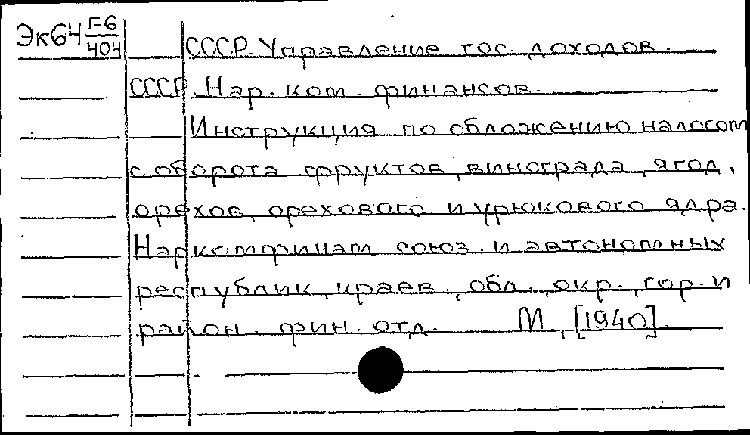 Эк64 Г-6/404
СССР. Управление гос. доходов.
СССР. Нар. ком. финансов.
Инструкция по обложению налогом
с оборота фруктов, винограда, ягод,
орехов, орехового и урюкового ядра.
Наркомфинам союз. и автономных
республик, краев., обл., окр., гор. и
район. фин. отд. М., [1940].